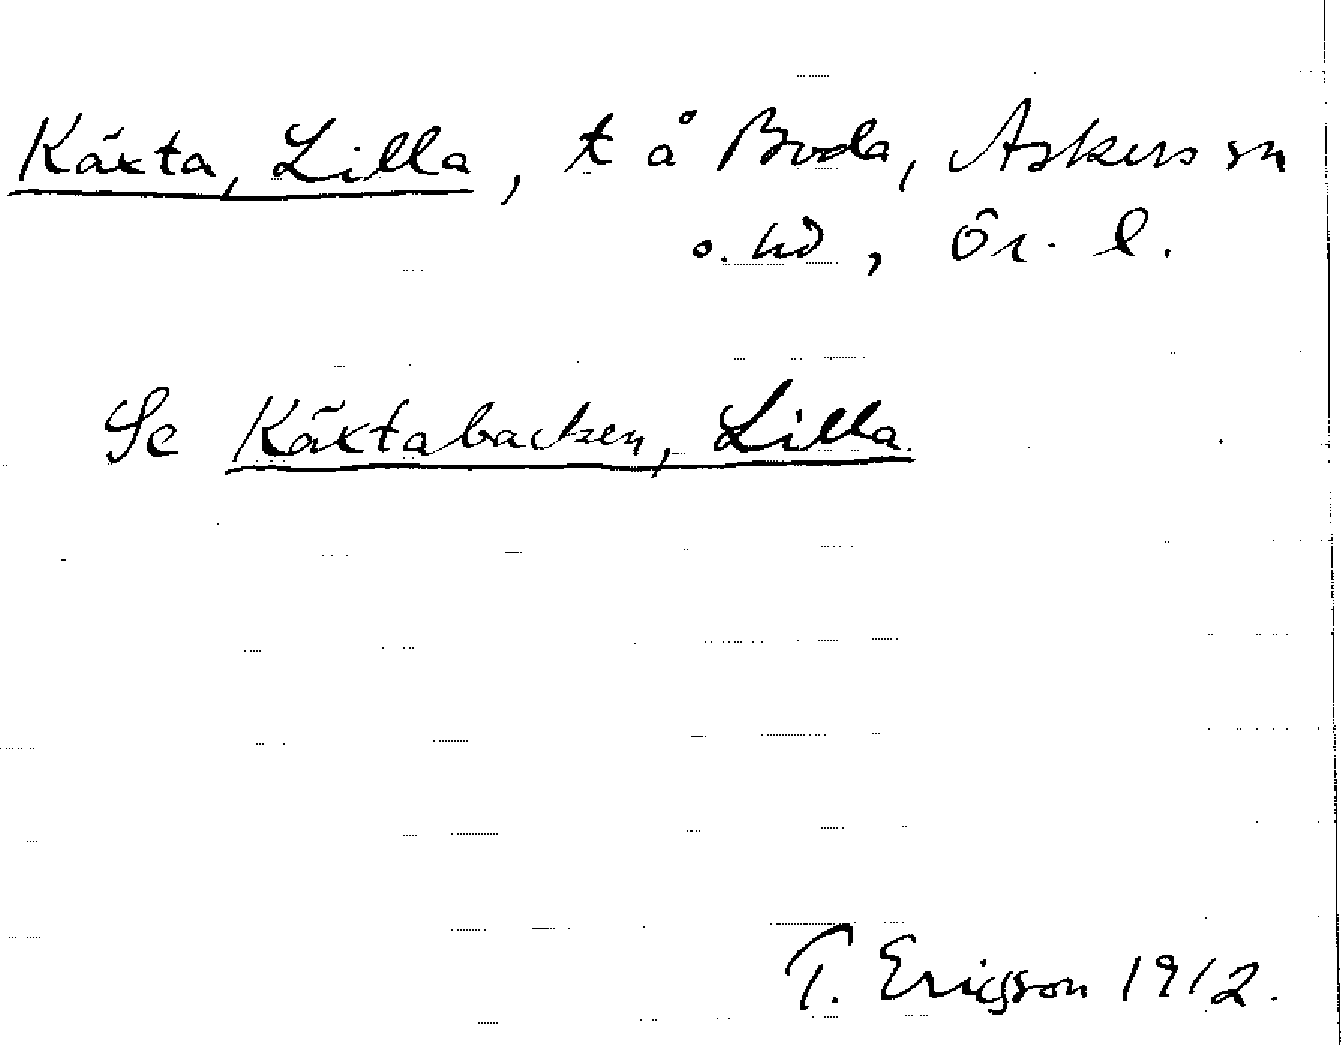 Käxta, Lilla, t å Boda, Askers sn
o. hd, Ör. l.
Se Käxtabacken, Lilla
T. Ericsson 1912.